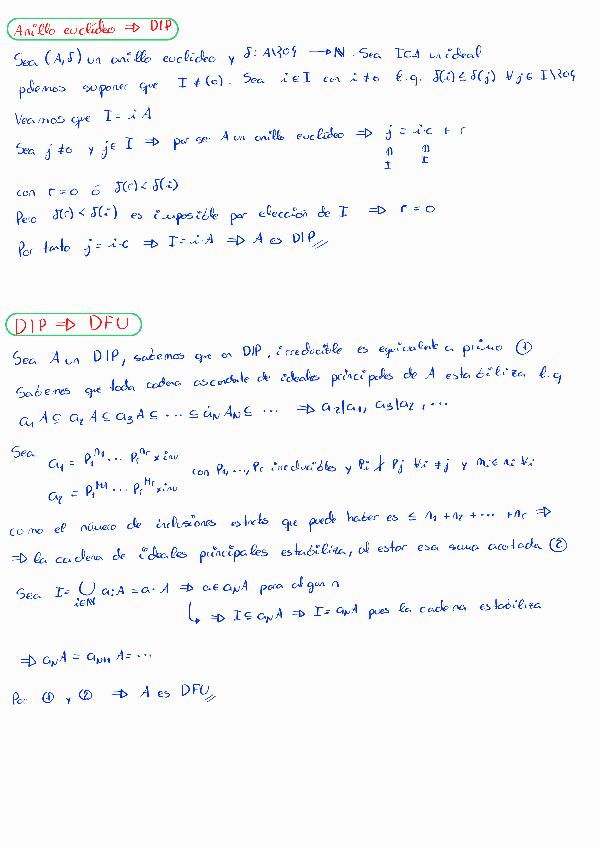 Anillo euclídeo ⇒ DIP
Sea (A,δ) un anillo euclídeo y δ: A\{0} → ℕ. Sea I⊂A un ideal
podemos suponer que I ≠ (0). Sea i ∈ I con i ≠ 0 t.q. δ(i) ≤ δ(j) ∀ j ∈ I\{0}
Veamos que I = iA
Sea j ≠ 0 y j ∈ I ⇒ por ser A un anillo euclídeo ⇒ j = i·c + r
I I
con r = 0 ó δ(r) < δ(i)
Pero δ(r) < δ(i) es imposible por elección de I ⇒ r = 0
Por tanto j = i·c ⇒ I = i·A ⇒ A es DIP
DIP ⇒ DFU
Sea A un DIP, sabemos que en DIP, irreducible es equivalente a primo ①
Sabemos que toda cadena ascendente de ideales principales de A estabiliza t.q
a₁A ⊆ a₂A ⊆ a₃A ⊆ ··· ⊆ aₙAₙ ⊆ ··· ⇒ a₂|a₁, a₃|a₂, ···
Sea a₁ = P₁ⁿ¹ ··· Pᵣⁿʳ × inv
con P₁, ..., Pᵣ irreducibles y Pᵢ ∤ Pⱼ ∀ i ≠ j y mᵢ ≤ nᵢ ∀ i
a₂ = P₁ᴹ¹ ··· Pᵣᴹʳ × inv
como el número de inclusiones estricto que puede haber es ≤ n₁ + n₂ + ··· + nᵣ ⇒
⇒ la cadena de ideales principales estabiliza, al estar esa suma acotada ②
Sea I = ⋃ aᵢA = a·A ⇒ a ∈ aₙA para algun n
i∈ℕ
↳ ⇒ I ⊆ aₙA ⇒ I = aₙA pues la cadena estabiliza
⇒ aₙA = aₙ₊₁A = ···
Por ① y ② ⇒ A es DFU